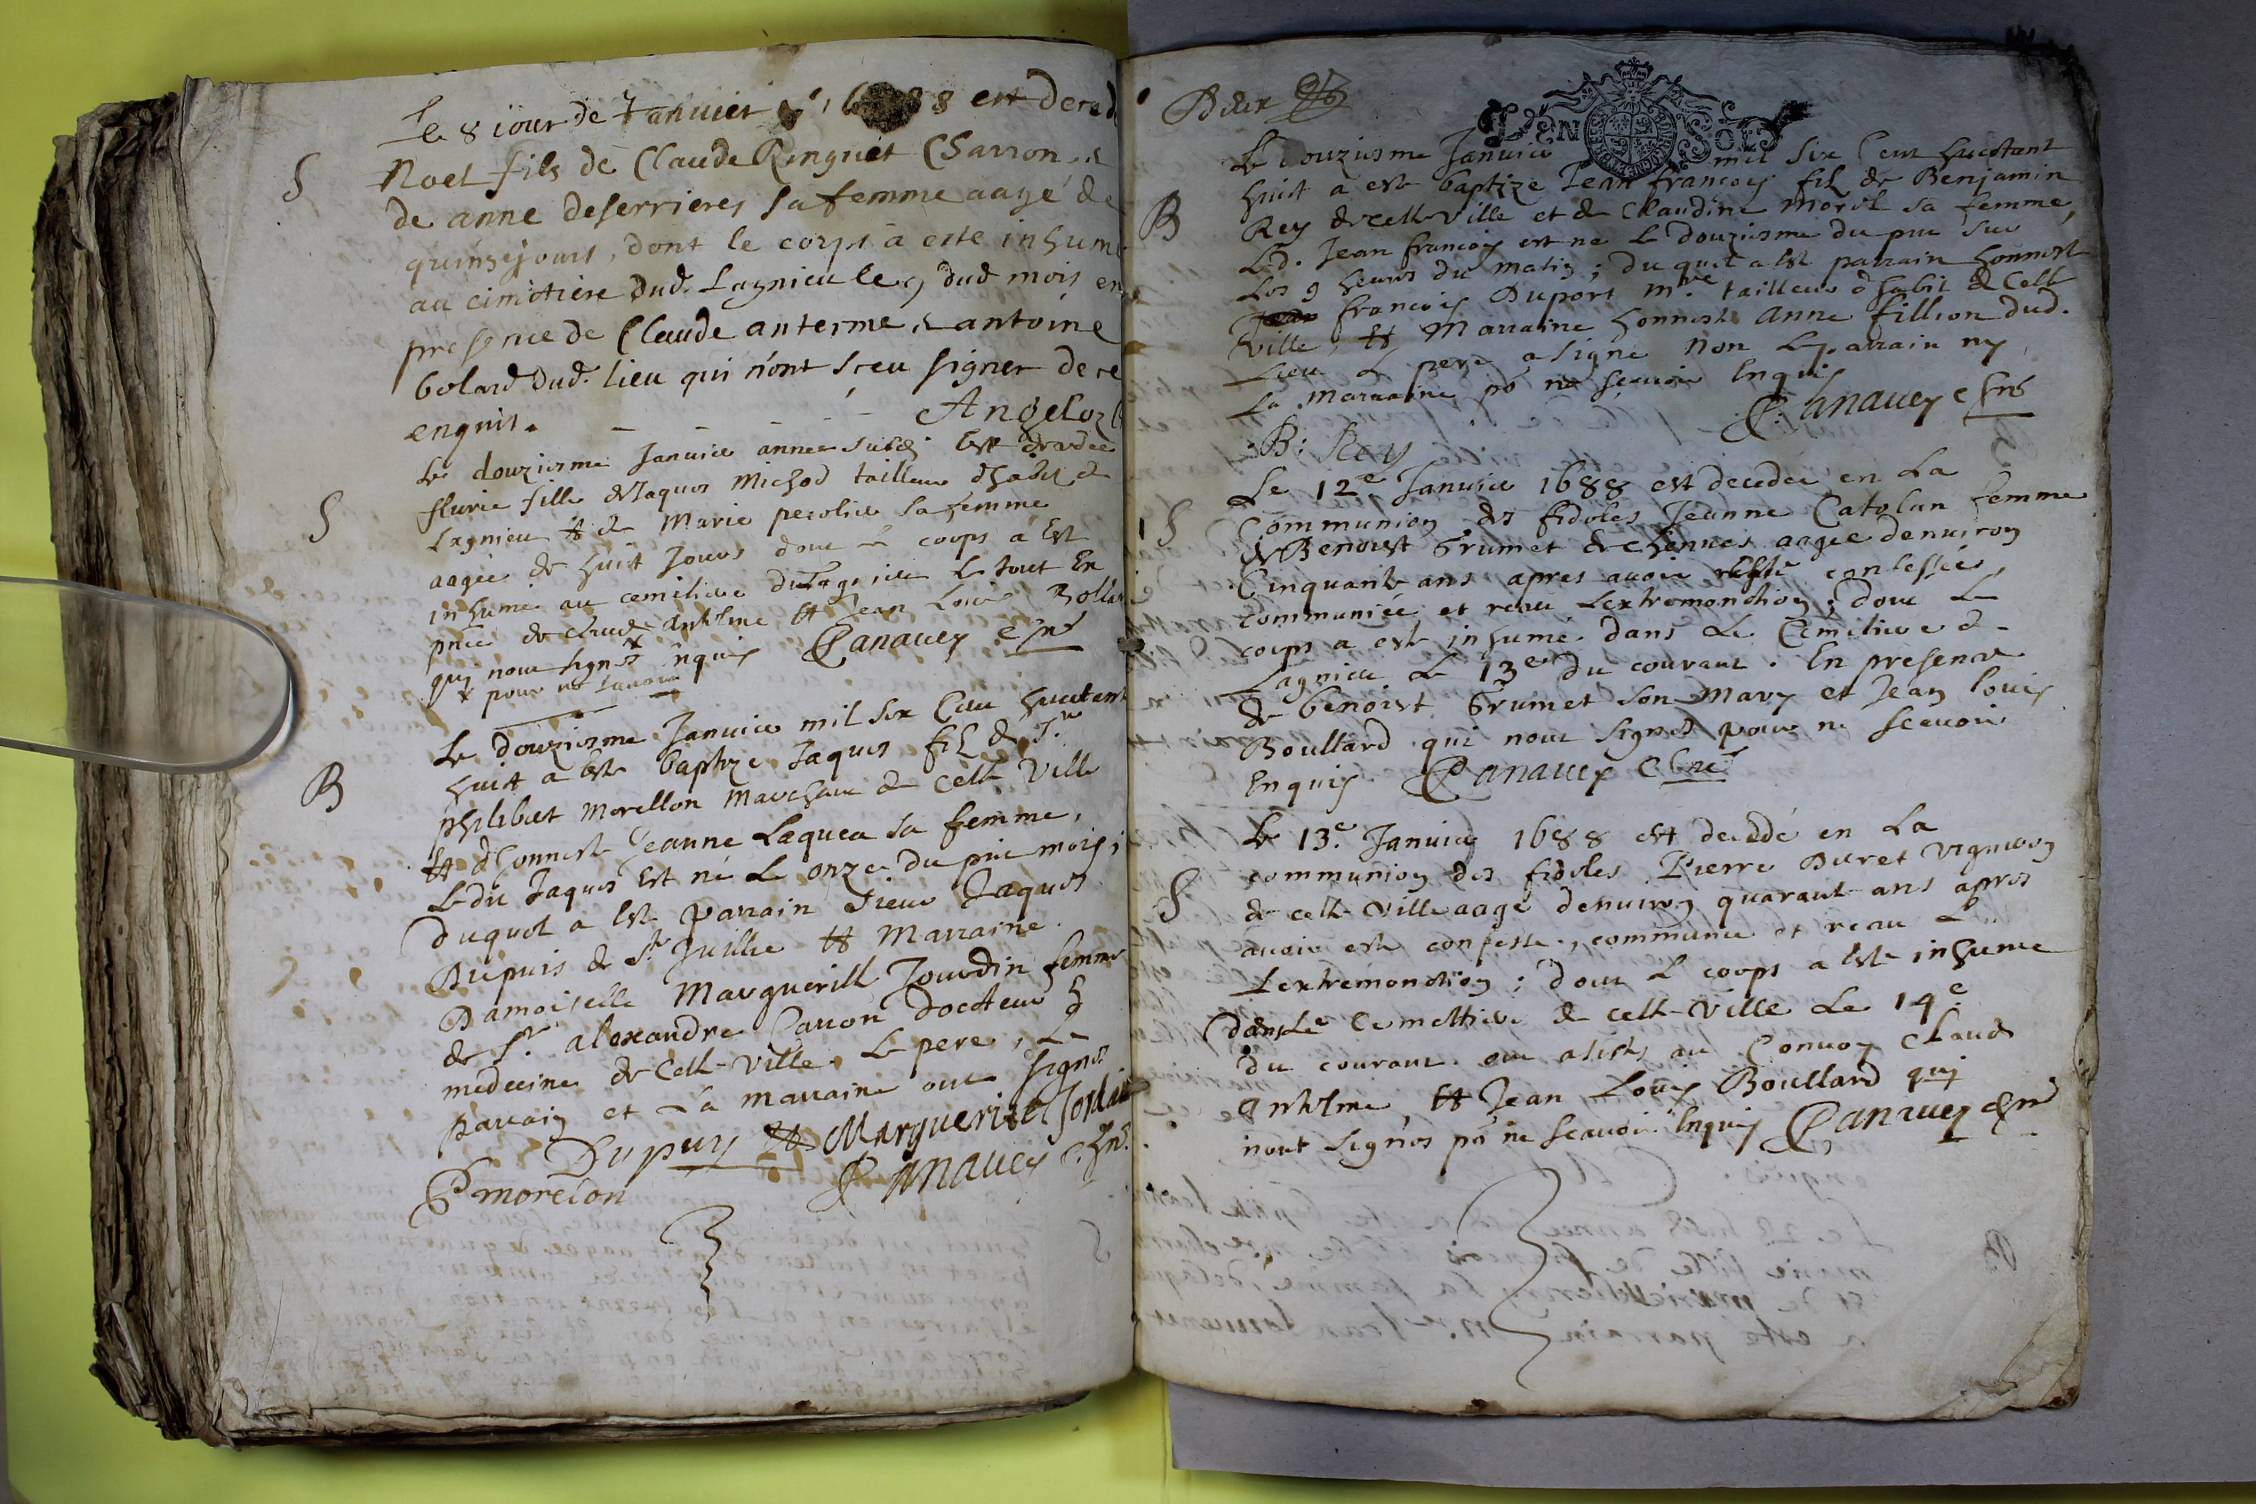 Le 8 iour de Januier 1688 est deced
S
Noel fils de Claude Ringuet Charron &
de anne deserrieres sa femme aagé de
quinze jours, dont le corps a este inhumé
au cimetiere dud. Lagnieu le 9 dud mois en
presence de Claude anterme & antoine
bolard dud. lieu qui n'ont sceu signer de ce
enquis.
Angeloz
Le douziesme Januier année susd. Est decedee
S
flurie fille de Jaques Michod tailleur d'habit de
Lagnieu & de Marie pecolier sa femme
aagée de huit Jours dont le corps a Est
inhumé au cemitiere du Lagnieu Le tout En
pnce de Claude Antelme Et Jean Louis Bollar
qui nont signés enquis Canauey Cure
x pour ne scavoir
Le douziesme Januier mil six Cent huictant
B
huit a este baptize Jaques fils de Sr
philibert Morellon Marchant de Cette Ville
Et d'honneste Jeanne Laquea sa femme,
Ledit Jaques Est né Le onze du pnt mois ;
duquel a Este parrain Sieur Jaques
Dupuis de St Juillie Et Marraine
Damoiselle Marguerite Jourdin femme
de Sr. alexandre Carron Docteur
medecine de Cette Ville. Le pere, Le
Parrain et La marraine ont signés
Dupuy Marguerite Jordain
P morelon Canauey Cure
Deux
L'EN SOLD
Le Douziesme Januier mil six Cent huictant
B
huit a este baptize Jean francois fils de Benjamin
Rey de cette Ville et de Claudine Morel sa femme,
Led. Jean francois est né Le douziesme du pnt sur
Les 9 heures du matin ; duquel a Este parrain honneste
Jean francois Duport mre tailleur d'habit de Cette
Ville, Et Marraine honneste Anne fillion dud.
Lieu Le pere a signé Non Le parrain ny
La marraine po ne scavoir Enquis
Canauey Cure
B: Rey
Le 12e Januier 1688 est decedee en La
S
Communion des fidoles Jeanne Catolan femme
de Benoist Grumet de Chennes aagee denuiron
Cinquante ans apres auoir esté confessée,
communiée et receu Lextremonction ; dont Le
corps a este inhumé dans Le Cemitiere de
Lagnieu Le 13e du courant. En presence
de benoist Grumet son Mary et Jean Louis
Boullard qui nont signés pour ne scauoir
Enquis. Canauey Cure
Le 13e. Januier 1688 est decedé en La
S
communion des fidoles Pierre Buret Vigneron
de cette Ville aagé denuiron quarante ans apres
auoir esté confessé, communié et receu
Lextremonction ; dont Le corps a Este inhumé
dans Le Cemettiere de cette Ville Le 14e
du courant. ont assistés au Conuoy Claude
Antelme, Et Jean Louis Boullard qui
nont signés po ne scauoir Enquis Canauey Cure